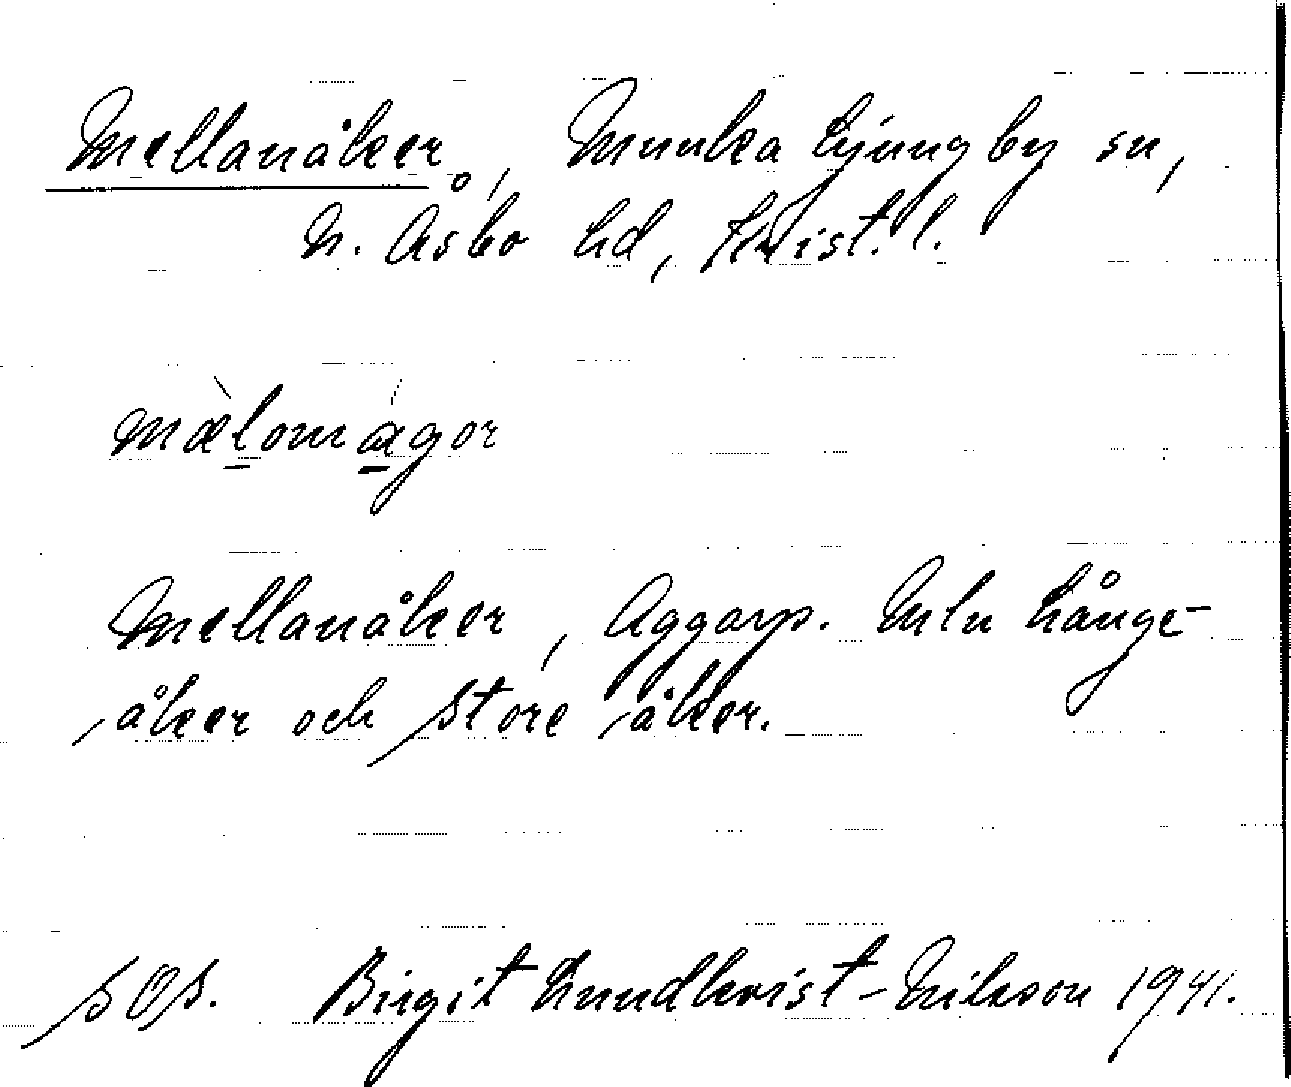 Mellanåker, Munka Ljungby sn,
N. Åsbo hd, Krist. l.
mæ̀lomágor
Mellanåker, Aggarp. Mln Långe-
åker och Store åker.
SOS. Birgit Lundkvist-Nilsson 1941.